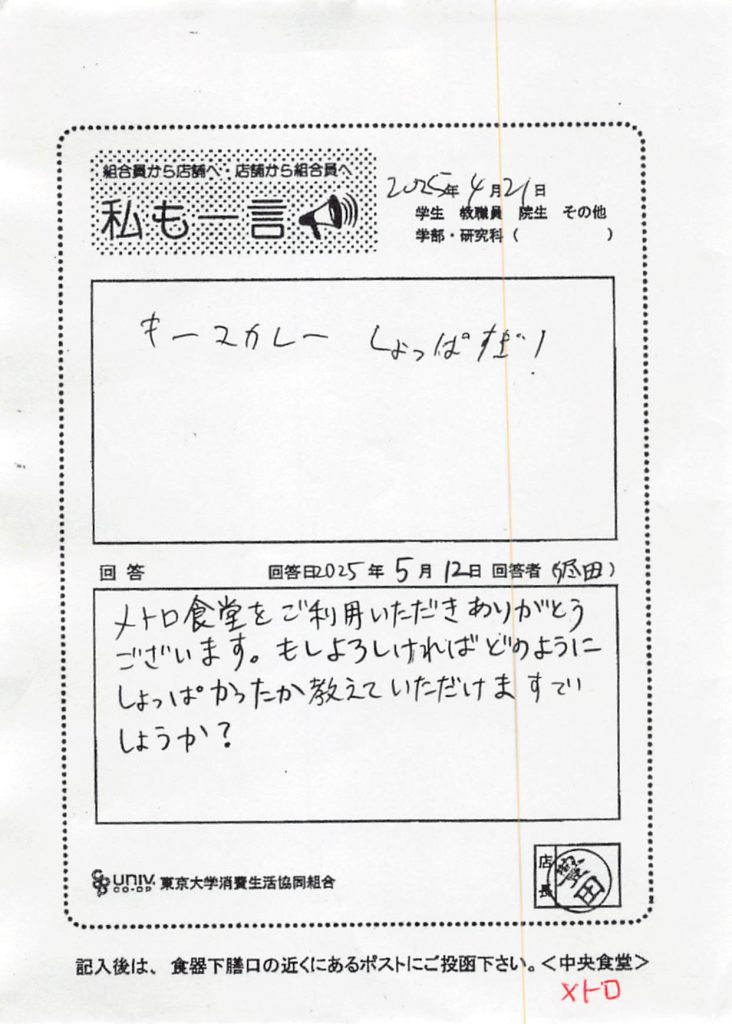 組合員から店舗へ・店舗から組合員へ
私も一言
2025年4月21日
学生 教職員 院生 その他
学部・研究科( )
キースカレー しょっぱすぎ!
回答 回答日2025年5月12日 回答者( 田)
メトロ食堂をご利用いただきありがとう
ございます。もしよろしければどのように
しょっぱかったか教えていただけますで
しょうか?
UNIV. CO-OP 東京大学消費生活協同組合
店長
田
記入後は、食器下膳口の近くにあるポストにご投函下さい。<中央食堂>
メトロ